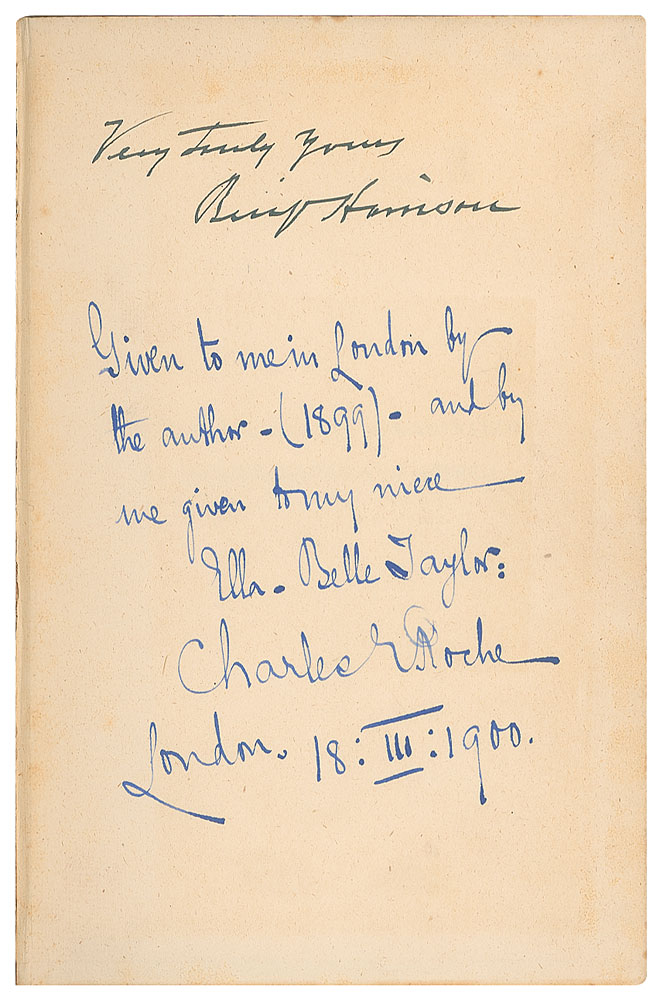 Very truly yours
Benj Harrison
Given to me in London by
the author - (1899) - and by
me given to my niece
Ella - Belle Taylor:
Charles E Roche
London. 18: III :1900.